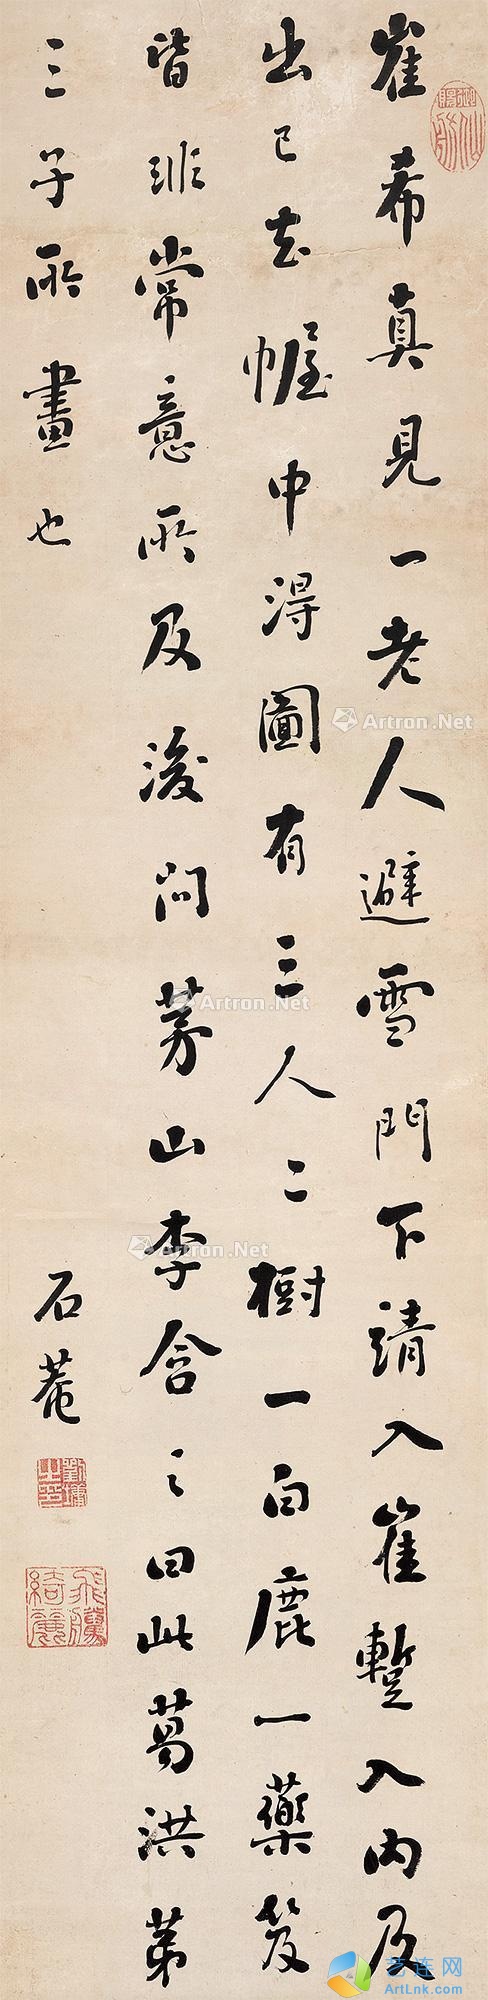 御賜仙舫
崔希真見一老人避雪門下請入崔蹔入內及
出已去幄中得圖有三人二樹一白鹿一藥笈
皆非常意所及後問茅山李含之曰此葛洪第
三子所畫也
石菴
劉墉之印
飛騰綺麗
Artron.Net
Artron.Net
Artron.Net
艺连网
ArtLnk.com